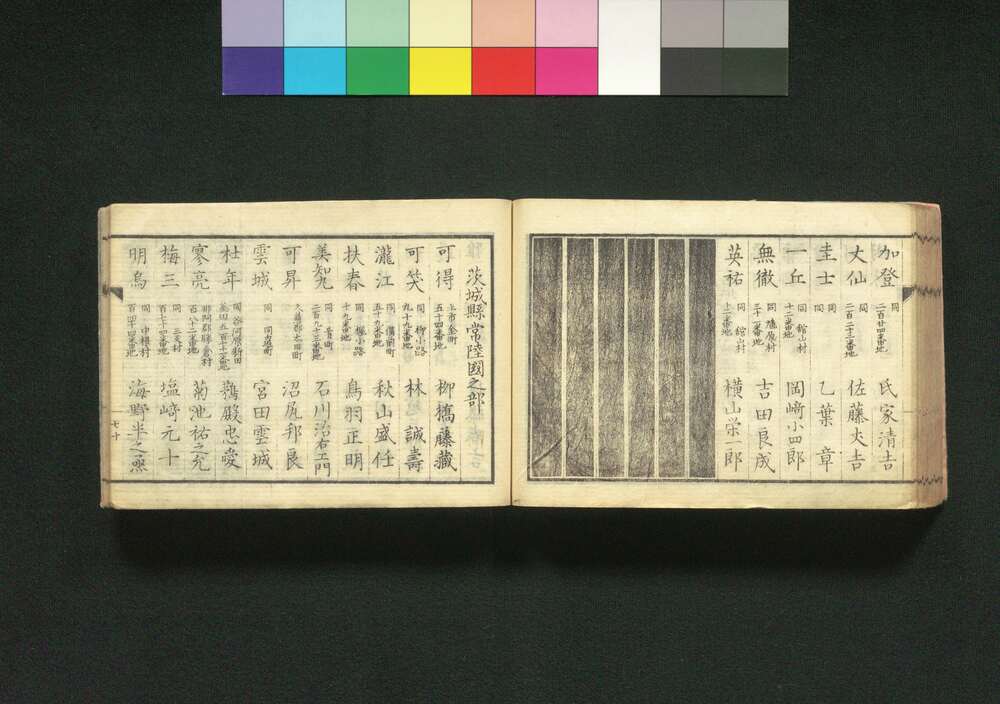 加登 同 二百廿四番地 氏家清吉
丈仙 同 二百二十二番地 佐藤丈吉
圭士 同 同 乙葉章
一丘 同 館山村 十二番地 岡﨑小四郎
無徹 同 二十一番地 吉田良成
英祐 同 舘山村 十二番地 横山栄一郎
茨城縣常陸國之部
可得 上市金町 五十四番地 柳橋藤藏
可笑 同 柳小路 九十九番地 林誠壽
瀧江 同 五十九番地 秋山盛任
扶春 同 十九番地 鳥羽正明
美知九 同 二百九十三番地 石川治右エ門
可昇 久慈郡太田町 沼尻邦良
雲城 同 同 宮田雲城
杜年 同 谷河原新田 鵜殿忠愛
寥亮 那珂郡 百八十二番地 菊池祐之允
梅三 同 百七十四番地 塩﨑元十
明烏 同 中根村 百四十四番地 海野半之烝
七十